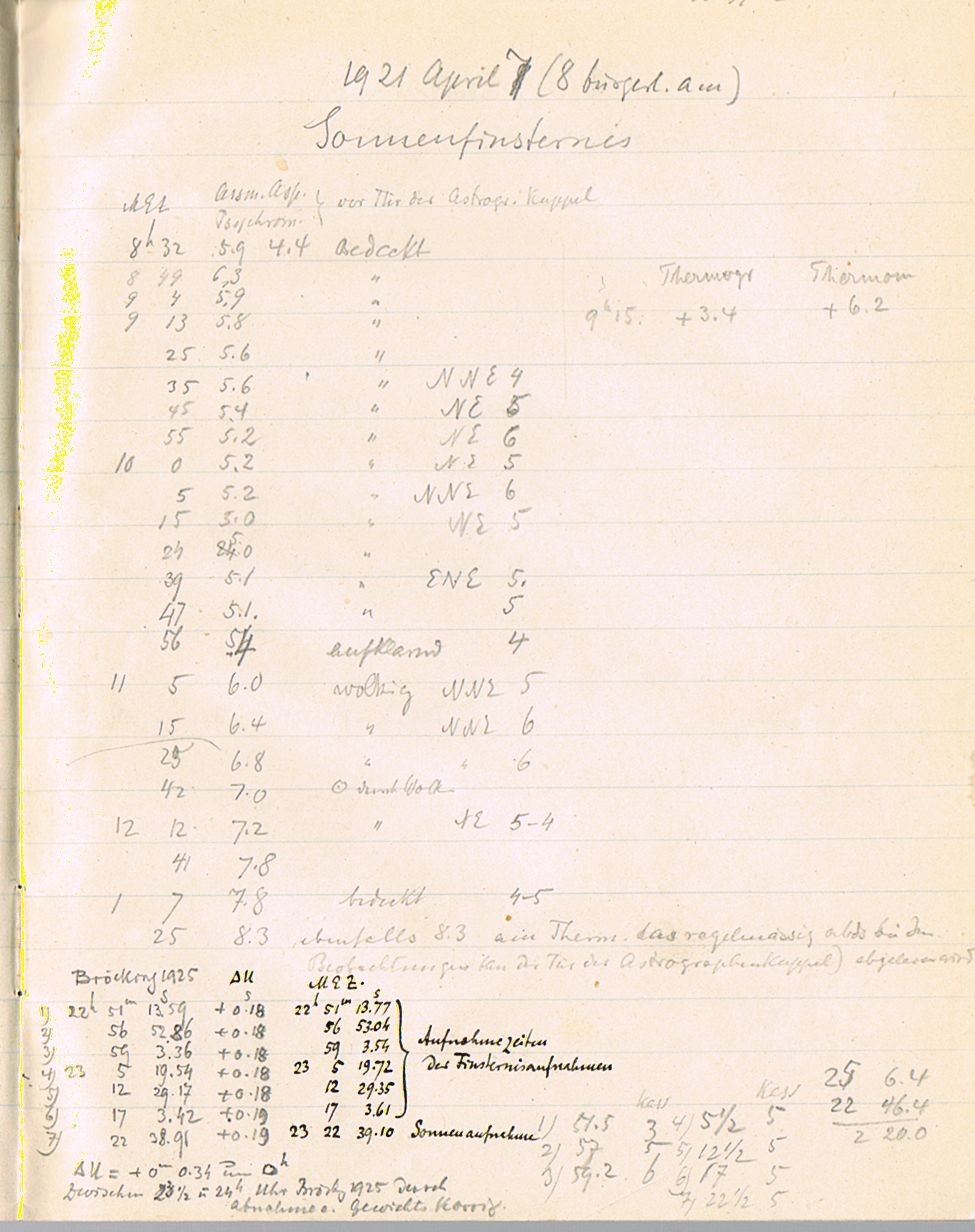 1921 April 7 (8 bürgerl. am)
Sonnenfinsternis
MEZ Assm. Asp. Psychrom. } vor Tür der Astrogr. Kuppel
8h 32 5.9 4.4 Bedeckt
8 49 6.3 " Thermogr Thermom
9 4 5.9 "
9 13 5.8 " 9h 15. + 3.4 + 6.2
25 5.6 "
35 5.6 " NNE 4
45 5.4 " NE 5
55 5.2 " NE 6
10 0 5.2 " NE 5
5 5.2 " NNE 6
15 5.0 " NE 5
5.0 "
39 5.1 " ENE 5.
47 5.1. " 5
56 5.4 aufklarend 4
11 5 6.0 wolkig NNE 5
15 6.4 " NNE 6
25 6.8 " " 6
42 7.0 ⊙ durch Wolk.
12 12 7.2 " NE 5-4
41 7.8
1 7 7.8 bedeckt 4-5
25 8.3 ebenfalls 8.3 am Therm. das regelmässig abds bei den
Beobachtungen (an der Tür der Astrographenkuppel) abgelesen wird
Bröcking 1925 ΔU M.E.Z.
1) 22h 51m 13.59s +0.18s 22h 51m 13.77s
2) 56 52.86 +0.18 56 53.04
3) 59 3.36 +0.18 59 3.54 Aufnahmezeiten
4) 23 5 19.54 +0.18 23 5 19.72 der Finsternisaufnahmen
5) 12 29.17 +0.18 12 29.35
6) 17 3.42 +0.19 17 3.61
7) 22 38.91 +0.19 23 22 39.10 Sonnenaufnahme
Kass Kass
1) 51.5 3 4) 5 1/2 5
2) 57 5 5) 12 1/2 5
3) 59.2 6 6) 17 5
7) 22 1/2 5
25 6.4
22 46.4
2 20.0
ΔU = +0m 0.34 um 0h
Zwischen 23 1/2 u 24h Uhr Bröckg 1925 durch
Abnahme e. Gewichts korrig.